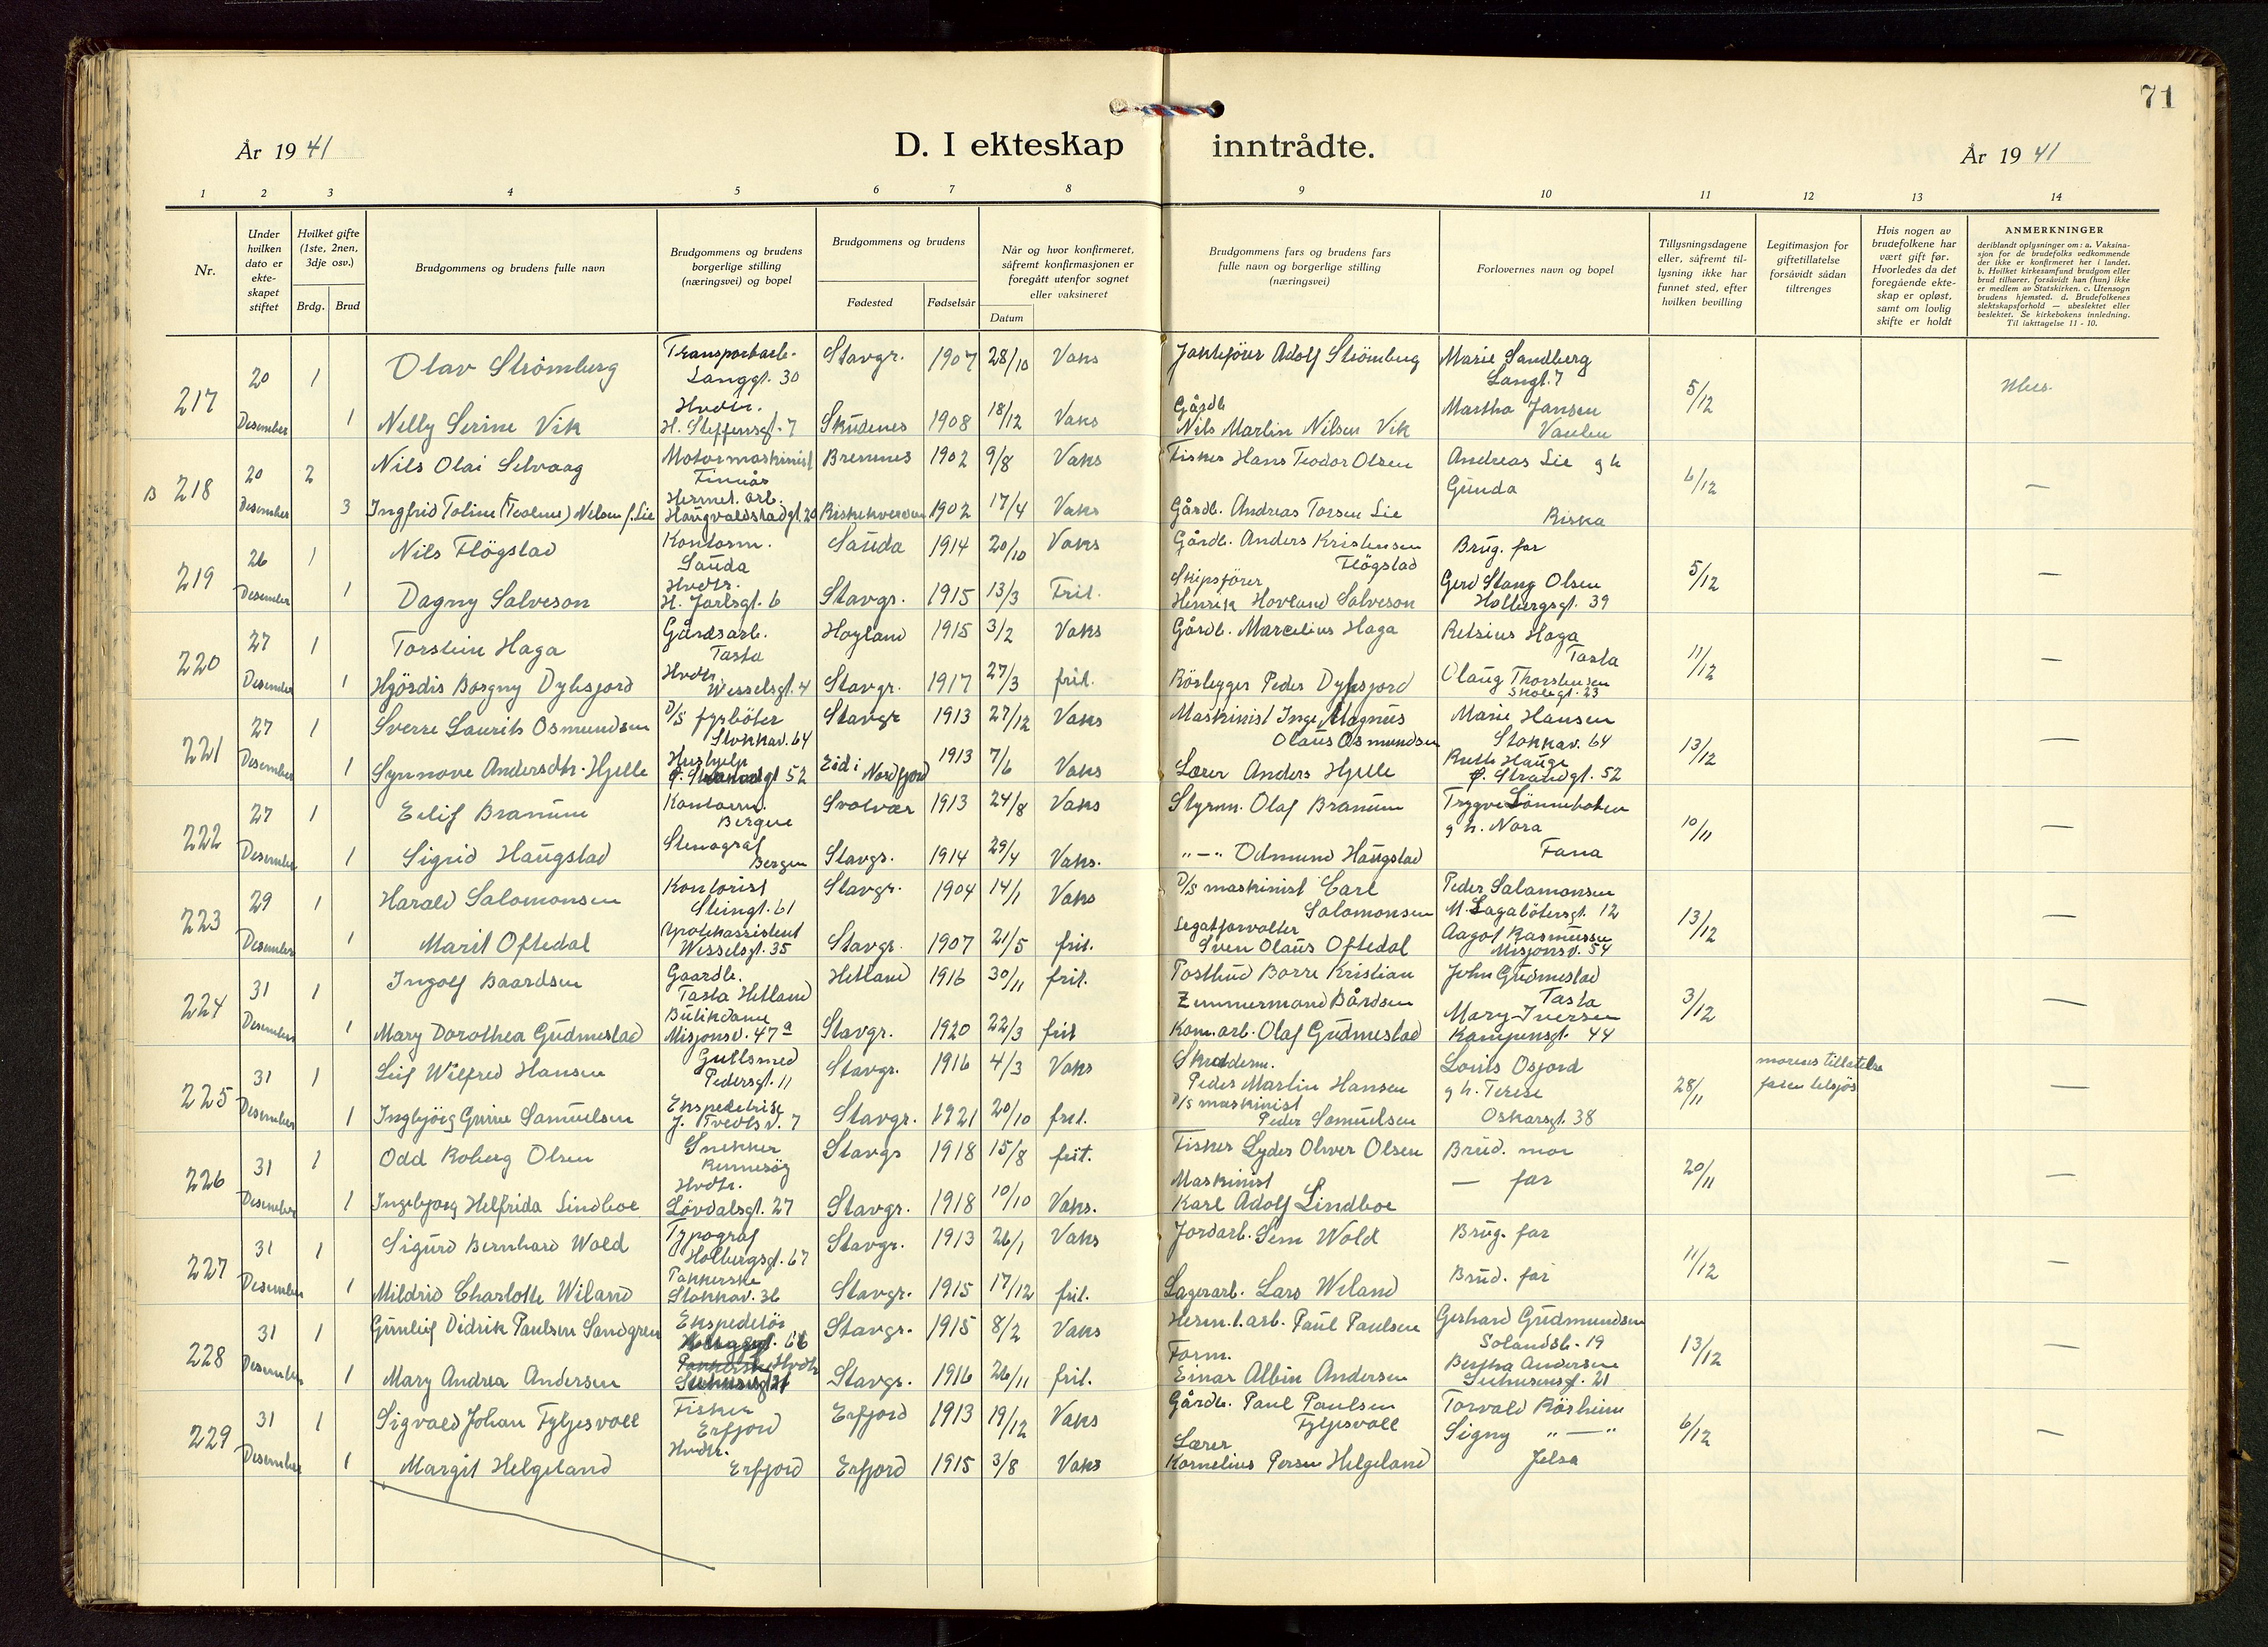 71
År 1941
D. I ekteskap inntrådte.
År 1941
1 2 3 4 5 6 7 8 9 10 11 12 13 14
Nr.
Under hvilken dato er ekte- skapet stiftet
Hvilket gifte (1ste, 2nen, 3dje osv.)
Brdg. Brud
Brudgommens og brudens fulle navn
Brudgommens og brudens borgerlige stilling (næringsvei) og bopel
Brudgommens og brudens
Fødested Fødselsår
Når og hvor konfirmeret, såfremt konfirmasjonen er foregått utenfor sognet eller vaksineret
Datum
Brudgommens fars og brudens fars fulle navn og borgerlige stilling (næringsvei)
Forlovernes navn og bopel
Tillysningsdagene eller, såfremt til- lysning ikke har funnet sted, efter hvilken bevilling
Legitimasjon for giftetillatelse forsåvidt sådan tiltrenges
Hvis nogen av brudefolkene har vært gift før. Hvorledes da det foregående ekte- skap er opløst, samt om lovlig skifte er holdt
ANMERKNINGER
deriblandt oplysninger om: a. Vaksina- sjon for de brudefolks vedkommende der ikke er konfirmert her i landet. b. Hvilket kirkesamfund brudgom eller brud tilhører, forsåvidt han (hun) ikke er medlem av Statskirken. c. Utensogn brudens hjemsted. d. Brudefolkenes slektskapsforhold — ubeslektet eller beslektet. Se kirkebokens innledning. Til iakttagelse 11 - 10.
217 20 Desember 1 Olav Strømberg Transportarb. Langgt. 30 Stavgr. 1907 28/10 Vaks Adolf Strömberg Marie Sandberg Langt. 7 5/12
1 Nelly Serine Vik Husdtr. H. Steffensgt. 7 Skudenes 1908 18/12 Vaks Gårdb. Nils Martin Nilsen Vik Martha Jansen Vaulen
B 218 20 Desember 2 Nils Olai Selvaag Motormaskinist Finnås Bremnes 1902 9/8 Vaks Fisker Hans Teodor Olsen Andreas Lie g h Gunda Riska 6/12 —
3 Ingfrid Toline (Teoline) Nelsen f. Lie Hermet. arb. Haugvaldstadgt. 20 1902 17/4 Vaks Gårdb. Andreas Torsen Lie
219 26 Desember 1 Nils Flögstad Kontorm. Sauda Sauda 1914 20/10 Vaks Gårdb. Anders Kristensen Flögstad Brug. far 5/12 —
1 Dagny Salveson Hvdtr. H. Jarlsgt. 6 Stavgr. 1915 13/3 Frit. Skipsfører Henrik Hovland Salveson Gerd Stang Olsen Holbergsgt. 39
220 27 Desember 1 Torstein Haga Gårdsarb. Tasta Høyland 1915 3/2 Vaks Gårdb. Marcelius Haga Retsius Haga Tasta 11/12 —
1 Hjördis Borgny Dybsjord Hvdtr. Wesselsgt. 4 Stavgr. 1917 27/3 frit. Rörlegger Peder Dybsjord Olaug Thorstensen Skolegt. 23
221 27 Desember 1 Sverre Laurits Osmundsen D/S fyrböter Stokkav. 64 Stavgr 1913 27/12 Vaks Maskinist Inge Magnus Olaus Osmundsen Marie Hansen Stokkav. 64 13/12 —
1 Synnøve Andersdtr. Hjelle Hushjelp Ø. Strandgt 52 Eid i Nordfjord 1913 7/6 Vaks Lærer Anders Hjelle Ruth Hauge Ø. Strandgt. 52
222 27 Desember 1 Eilif Branum Kontorm. Bergen Svolvær 1913 24/8 Vaks Styrm. Olaf Branum Trygve Lönnebotn g h. Nora Fana 10/11 —
1 Sigrid Haugstad Stenograf Bergen Stavgr. 1914 29/4 Vaks. "—" Odmund Haugstad
223 29 Desember 1 Harald Salomonsen Kontorist Steingt. 61 Stavgr. 1904 14/1 Vaks D/S maskinist Carl Salomonsen Peder Salomonsen M. Lagabötersgt. 12 13/12 —
1 Marit Oftedal Apotekassistent Wesselsgt. 35 Stavgr. 1907 21/5 frit. Legatforvalter Sven Olaus Oftedal Aagot Rasmussen Misjonsv. 54
224 31 Desember 1 Ingolf Baardsen Gaardb. Tasta Hetland Hetland 1916 30/11 frit. Postbud Børre Kristian Zimmermand Bårdsen John Gudmestad Tasta 3/12 —
1 Mary Dorothea Gudmestad Butikdame Misjonsv. 47a Stavgr. 1920 22/3 frit Kom. arb. Olaf Gudmestad Mary Iversen Kampensgt. 44
225 31 Desember 1 Leif Wilfred Hansen Gullsmed Pedersgt. 11 Stavgr. 1916 4/3 Vaks Skredderm. Peder Martin Hansen Louis Osfjord g h. Terese Oskarsgt. 38 28/11 morens tillatelse faren tilsjös —
1 Ingbjörg Gurine Samuelsen Ekspeditrise J. Tvedtsv. 7 Stavgr. 1921 20/10 frit. D/S maskinist Peder Samuelsen
226 31 Desember 1 Odd Roberg Olsen Snekker Rennesöy Stavgr 1918 15/8 frit. Fisker Lyder Oliver Olsen Brud. mor 20/11 —
1 Ingebjørg Helfrida Lindboe Hvdtr. Lövdalsgt. 27 Stavgr. 1918 10/10 Vaks. Maskinist Karl Adolf Lindboe — far
227 31 Desember 1 Sigurd Bernhard Wold Typograf Holbergsgt. 67 Stavgr. 1913 26/1 Vaks Jordarb. Sem Wold Brug. far 11/12 —
1 Mildrid Charlotte Wiland Pakkerske Stokkav. 36 Stavgr. 1915 17/12 frit. Lagerarb. Lars Wiland Brud. far
228 31 Desember 1 Gunleif Didrik Paulsen Sandgren Ekspeditör Stavgr. 1915 8/2 Vaks Herm. l. arb. Paul Paulsen Gerhard Gudmundsen Solandsb. 19 13/12 —
1 Mary Andrea Andersen Pakkerske Hvdtr Stavgr. 1916 26/11 frit. Form. Einar Albin Andersen Bertha Andersen 21
229 31 Desember 1 Sigvald Johan Fyljesvoll Fisker Erfjord Erfjord 1913 19/12 Vaks Gårdb. Paul Paulsen Fyljesvoll Torvald Rörheim 6/12 —
1 Margit Helgeland Hvdtr. Erfjord Erfjord 1915 3/8 Vaks Lærer Kornelius Persen Helgeland Signy "—" Jelsa